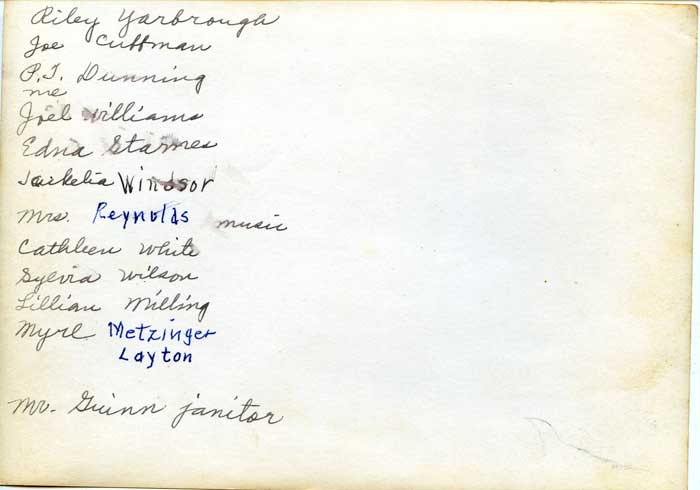 Riley Yarbrough
Joe Cuffman
P.T. Dunning
me
Joel Williams
Edna Starnes
Windsor
Mrs. Reynolds music
Cathleen White
Sylvia Wilson
Lillian Milling
Myrl Metzinger
Layton
Mr. Guinn janitor